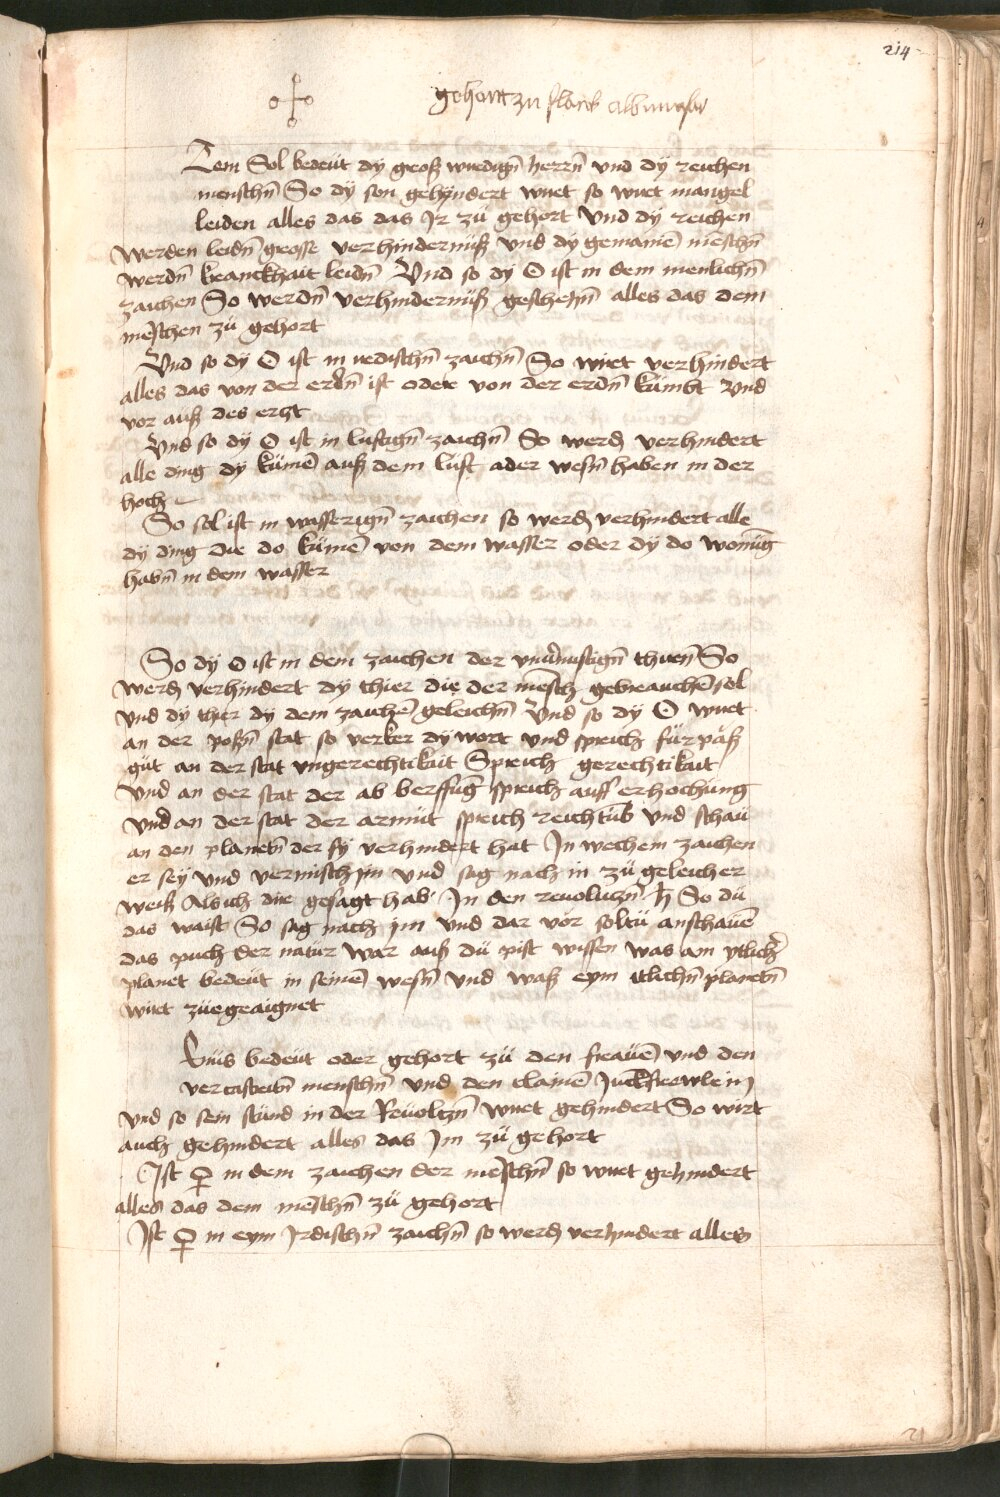 214
gehortt zu
Item Sol bedeut dÿ groß wirdign̄ herrn̄ vnd dÿ reichen
menschn̄ So dÿ son gehÿndert wirt so wirt mangel
leiden alles das das Ir zü gehort Vnd dÿ reichen
Werden leidn̄ grosse verhindernüß vnd dÿ gemainē mēschn̄
werdn̄ kranckhait leidn̄ Vnd so dÿ ☉ ist in dem menlichn̄
zaichen So werdn̄ verhindernüß geschehn̄ alles das dem
mēschen zü gehort
Vnd so dÿ ☉ ist in irdischn̄ zaichn̄ So wirt verhindert
alles das von der erdn̄ ist oder von der erdn̄ kümbt Vnd
vor auß des erczt
Vnd so dÿ ☉ ist in luftign̄ zaichn̄ So werdn̄ verhindert
alle ding dÿ kümē auß dem luft ader wesn̄ haben in der
hoch
So sol ist in wasserign̄ zaichen so werdn̄ verhindert alle
dÿ ding die do kümē von dem wasser oder dÿ do wonūg
habn̄ in dem wasser
So dÿ ☉ ist in dem zaichen der vnv̄nuftign̄ thirrn̄ So
werdn̄ verhindert dÿ thier die der mēsch gebrauchē sol
vnd dÿ thir dÿ dem zaichē geleichn̄ Vnd so dÿ ☉ wirt
an der poßn̄ stat so verker dÿ wort vnd sprich für päß
güt an der stat vngerechtikait Sprich gerechtikait
Vnd an der stat der ab berffūg sprich auff erhochūng
Vnd an der stat der armüt sprich reichtūb vnd schaü
an den planetn̄ der sÿ verhindert hat In wechem zaichen
er seÿ vnd vermisch im vnd sag nach in zü geleicher
weiß Als ich dir gesagt hab In den reuoluczn̄ ♄ So dü
das waist So sag nach im vnd dar vor soltü anschauē
das puch der natur War auß dü pist wissen was ain ytlich̄
planet bedeut in seinē wesn̄ vnd waß eym itlichn̄ planetn̄
wirt züegeaignet
Venus bedeut oder gehort zü den frauē vnd den
vercastritn̄ menschn̄ vnd den clainē Juckfrewlein
vnd so sein stünd in der Reuolczn̄ wirt gehindert So wirt
auch gehindert alles das Im zü gehort
Ist ♀ in dem zaichen der mēschn̄ so wirt gehindert
alles das dem mēschn̄ zü gehort
Ist ♀ in eym Irdischn̄ zaichn̄ so werdn̄ verhindert alles